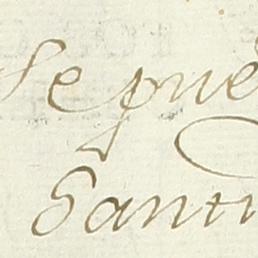 Se pue
Santi